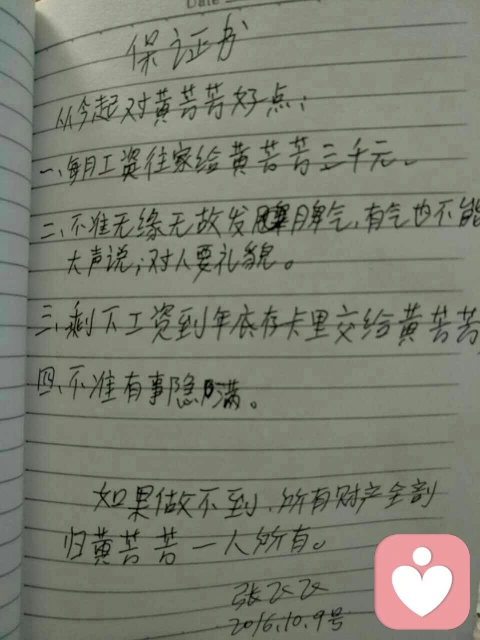 Date
保证书
从今起对黄苦苦好点：
一、每月工资往家给黄苦苦三千元。
二、不准无缘无故发脾气，有气也不能
大声说；对人要礼貌。
三、剩下工资到年底存卡里交给黄苦苦
四、不准有事隐满。
如果做不到、所有财产全剖
归黄苦苦一人所有。
张
2016.10.9号